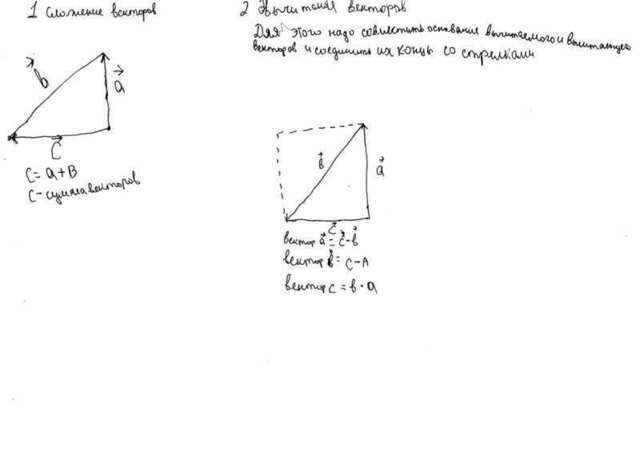 1 Сложение векторов
b
a
C
C = a + B
C - сумма векторов
2 Вычитания векторов
Для этого надо совместить основание вычитаемого и вычитающего
векторов и соединить их концы со стрелками
b
a
C
вектор a = c - b
вектор b = c - A
вектор c = b · a